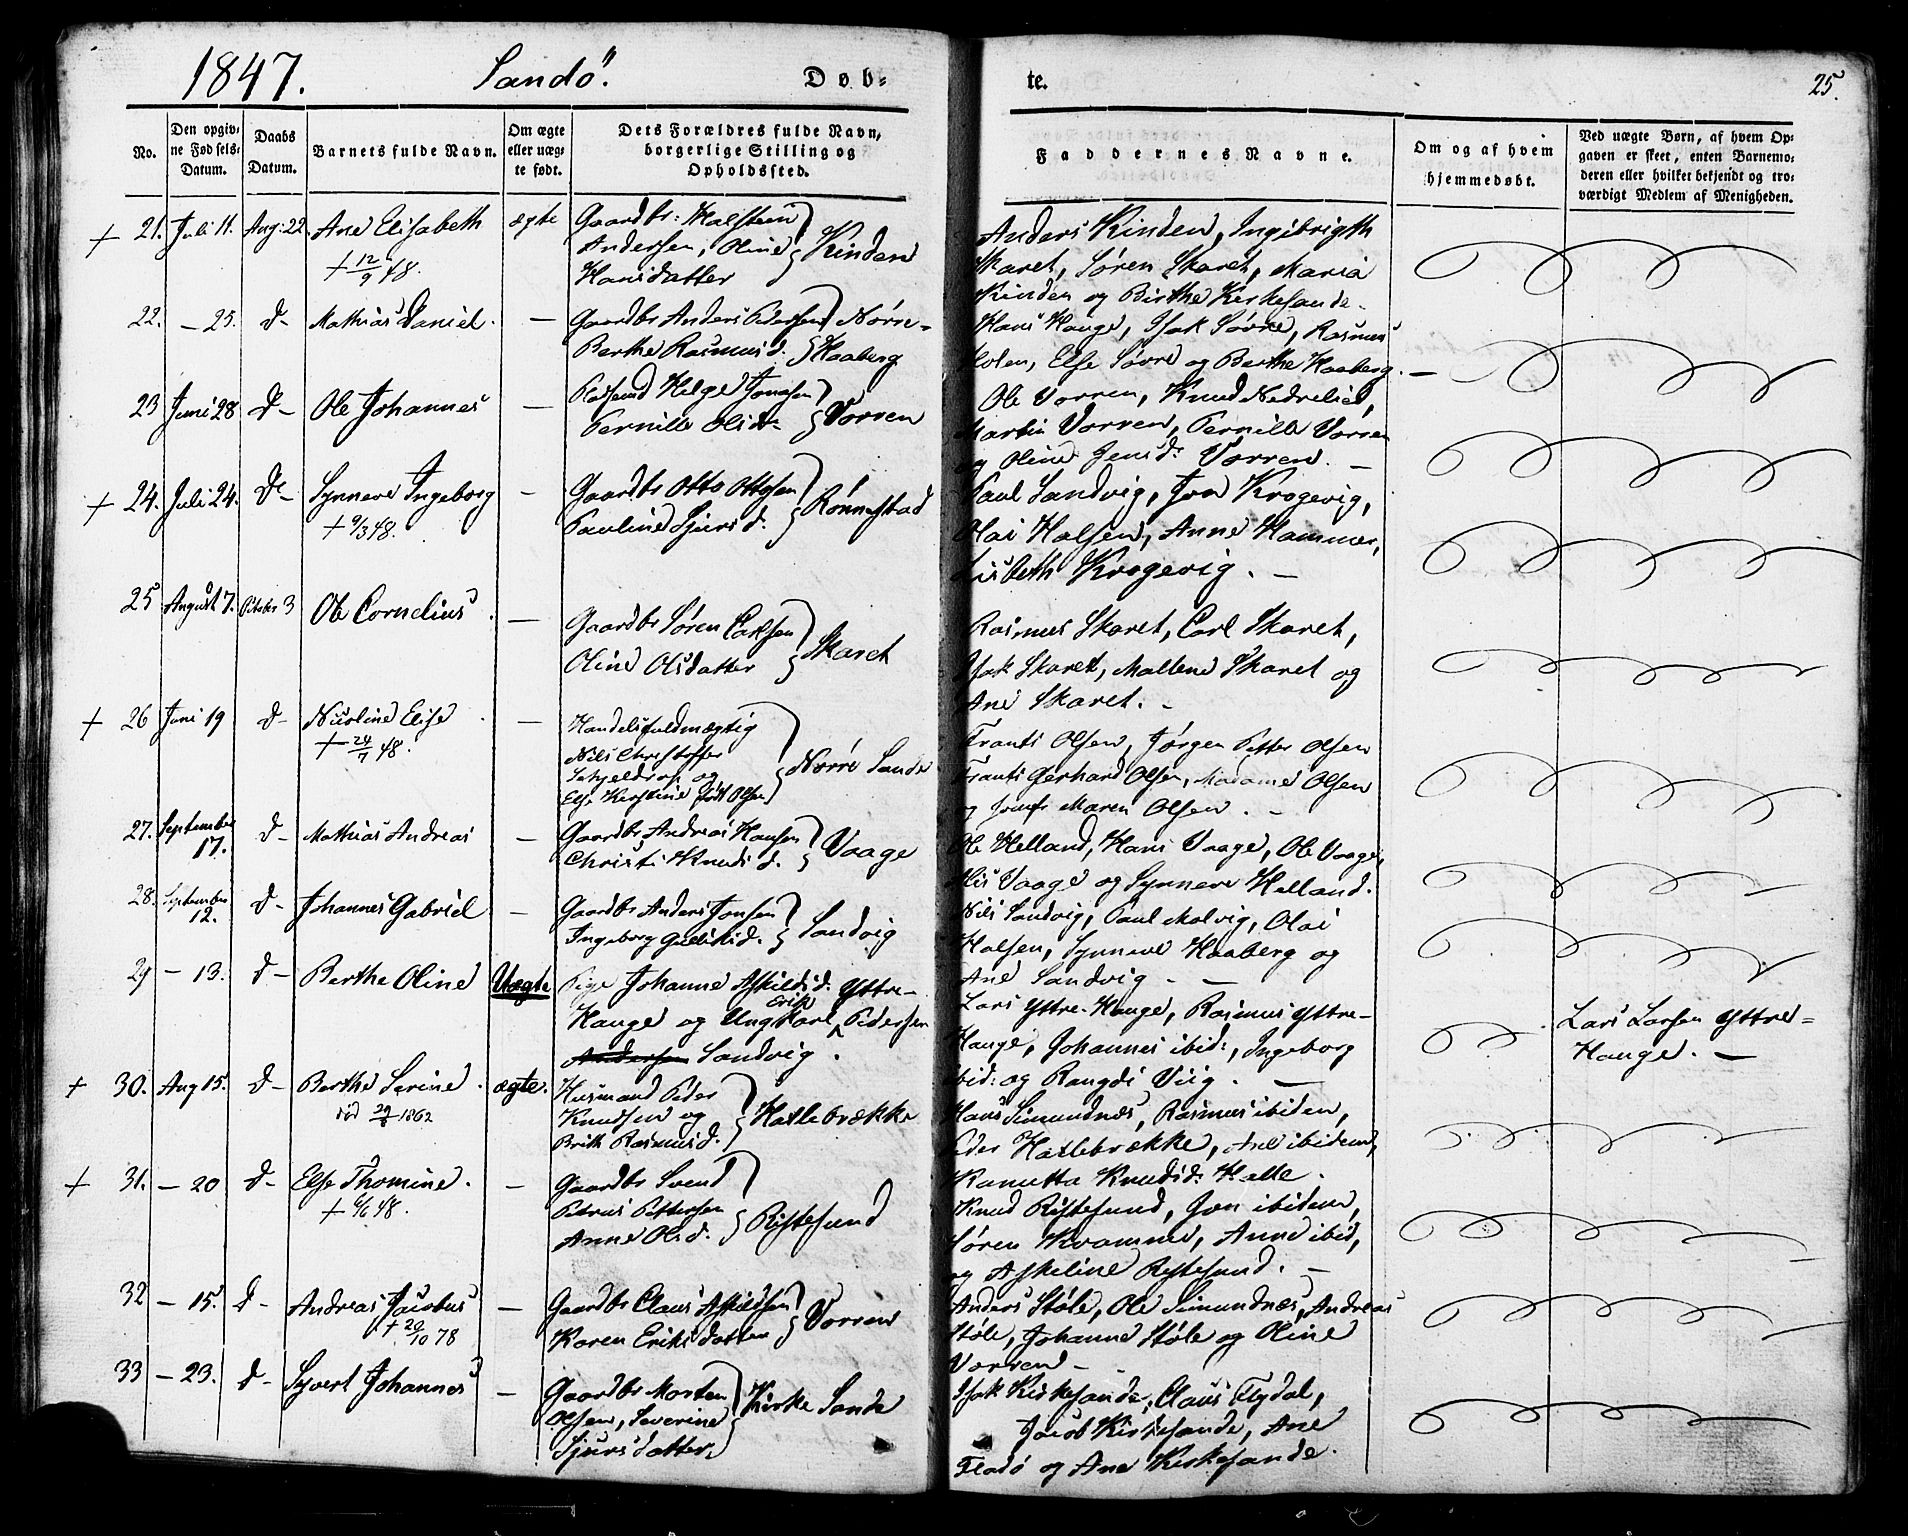 1847. Sandö. Døb-
te. 25.
No.
Den opgiv-
ne Fødsels-
Datum.
Daabs
Datum.
Barnets fulde Navn.
Om ægte
eller uæg-
te født.
Dets Forældres fulde Navn,
borgerlige Stilling og
Opholdssted.
Faddernes Navne.
Om og af hvem
hjemmedøbt.
Ved uægte Børn, af hvem Op-
gaven er skeet, enten Barnemo-
deren eller hvilket bekjendt og tro-
værdigt Medlem af Menigheden.
+ 21. Juli 11. Aug: 22. Ane Elisabeth ægte
+ 12/9 48.
Gaardbr: Halsteen
Andersen, Oline } Kinden
Hansdatter
Anders Kinden, Ingibrigth
Skaret, Søren Skaret, Maria
Kinden og Birthe Kirkesande.
22. — 25. d— Mathias Daniel. —
Gaardbr Anders Pedersen } Nørre-
Berthe Rasmusd. } Haaberg
Hans Hauge, Isak Søvre, Rasmus
Holen, Else Søvre og Berthe Haaberg. —
23 Juni 28 d— Ole Johannes —
Helge Jonsen
Pernille Olsdr } Vorren
Ole Vorren, Knud Nedrelied,
Martin Vorren, Pernille Vorren
og Oline Jensd: Vorren. —
+ 24. Juli 24. d— Synneve Ingeborg —
+ 9/3 48.
Gaardbr Otto Ottosen
Pauline Sjursd. } Rönnestad
Paul Sandvig, Jon Krogevig,
Olai Halsen, Anne Hammer,
Lisbeth Krogevig. —
25 August 7. October 3 Ole Cornelius. —
Gaardbr Søren Carlsen
Oline Olsdatter } Skaret
Rasmus Skaret, Carl Skaret,
Isak Skaret, Maltene Skaret og
Ane Skaret. —
+ 26 Juni 19 d— Nicoline Elise. —
+ 24/7 48.
Handelsfuldmægtig
Nils Christoffer
Schjeldrop og
Else Kirstine født Olsen } Nørre Sande
Frants Olsen, Jørgen Petter Olsen
Frants Gerhard Olsen, Madame Olsen
og Jomfr Maren Olsen. —
27. September
17. d— Mathias Andreas —
Gaardbr Andreas Hansen
Christi Knudsd. } Vaage
Ole Helland, Hans Vaage, Ole Vaage,
Nils Vaage og Synneve Helland.
28. September
12. d— Johannes Gabriel —
Gaardbr Anders Jonsen
Ingeborg Gullikd. } Sandvig
Nils Sandvig, Paul Malvig, Olai
Halsen, Synneve Haaberg og
Ane Sandvig. —
29 — 13. d— Berthe Oline Uægte
Pige Johanne Askildsd. Yttre-
Hauge og Ungkarl Erik Pedersen
Andersen Sandvig.
Lars Yttre-Hauge, Rasmus Yttre-
Hauge, Johannes ibid:, Ingeborg
ibid: og Rangdi Viig. —
Lars Larsen Yttre-
Hauge. —
+ 30. Aug 15. d— Berthe Serine. ægte.
1862
Husmand Peder
Knudsen og
Brith Rasmusd. } Hatlebrække
Hans Simundnæs, Rasmus ibiden,
Peder Hatlebrække, Ane ibidem,
Kanutta Knudsd: Hatle.
+ 31. — 20 d— Else Thomine. —
+ 6/6 48.
Gaardbr Svend
Petrus Pettersen
Anne Olsd. } Ristesund
Knud Ristesund, Jon ibidem,
Søren Kvamme, Anne ibid,
og Askeline Ristesund. —
32 — 15. d— Andreas Jacobus —
+ 20/10 78
Gaardbr Claus Askildsen
Karen Eriksdatter } Vorren
Anders Støle, Ole Simundnæs, Andreas
Støle, Johanne Støle og Oline
Vorren —
33 — 23. d— Syvert Johannes —
Gaardbr Morten
Olsen, Severine
Sjursdatter. } Kirke Sande
Isak Kirkesande, Claus Flydal,
Jacob Kirkesande, Ane
Flødø og Ane Kirkesande.